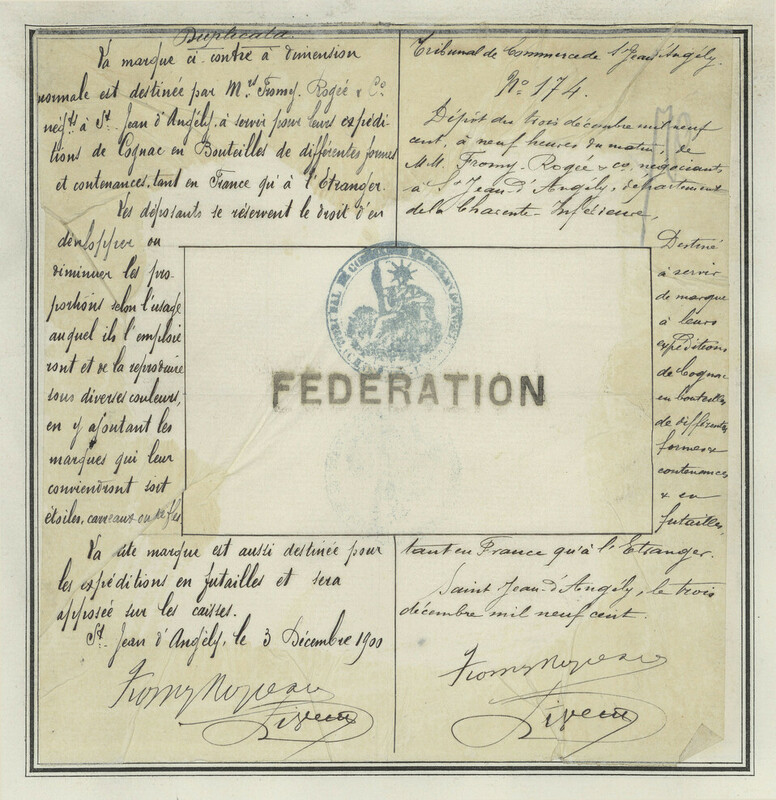 Duplicata.
La marque ci contre à dimension
normale est destinée par Mrs Fromy. Rogée & Co.
négts à St. Jean d'Angély, à servir pour leurs expédi-
tions de Cognac en Bouteilles de différentes formes
et contenances, tant en France qu'à l'Etranger.
Les déposants se réservent le droit d'en
développer ou
diminuer les pro-
portions selon l'usage
auquel ils l'emploie
ront et de la reproduire
sous diverses couleurs,
en y ajoutant les
marques qui leur
conviendront soit
étoiles, carreaux ou
La
marque est aussi destinée pour
les expéditions en futailles et sera
apposée sur les caisses.
St. Jean d'Angély, le 3 Décembre 1900
Tribunal de Commerce de St Jean d'Angély.
No 174.
Dépôt du trois décembre mil neuf
cent, à neuf heures du matin, de
M.M. Fromy-Rogée & co, négociants
à St Jean-d'Angély, département
de la Charente-Inférieure,
Destiné
à servir
de marque
à leurs
expéditions
de Cognac
en bouteilles
de différentes
formes &
contenances
& en
futailles,
tant en France qu'à l'Etranger.
Saint Jean-d'Angély, le trois
décembre mil neuf cent.
FEDERATION